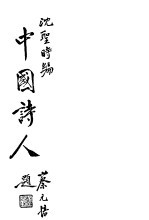 沈聖時編
中國詩人
蔡元培
題